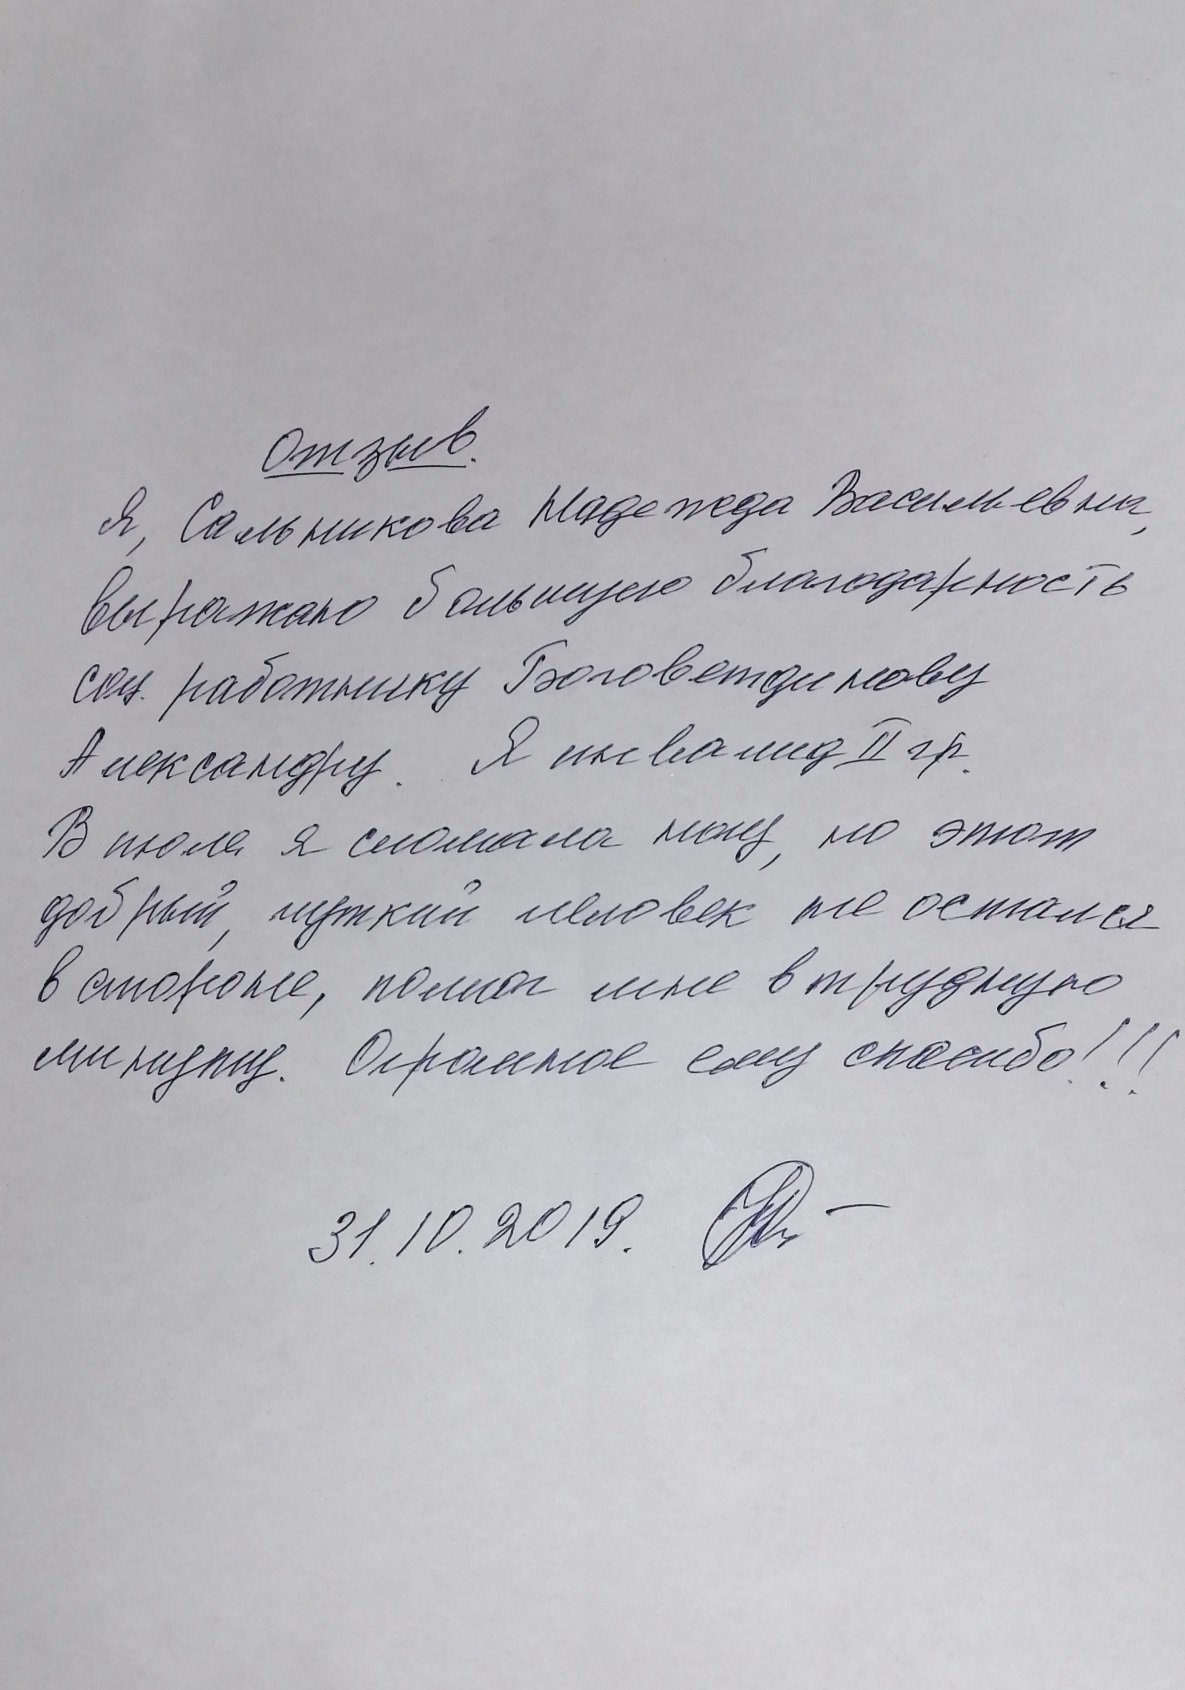 Отзыв.
Я, Сальникова Надежда Васильевна,
выражаю большую благодарность
соц. работнику Боговетдинову
Александру. Я инвалид II гр.
В июле я сломала ногу, но этот
добрый, чуткий человек не остался
в стороне, помог мне в трудную
минуту. Огромное ему спасибо!!!
31.10.2019.